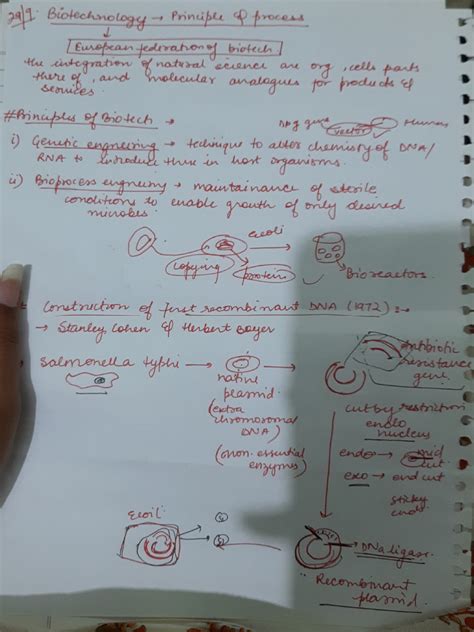 29/9. Biotechnology → Principle & process
European federation of biotech.
the integration of natural science are org, cells parts
there of, and molecular analogues for products &
services.
#Principles of Biotech →
vector
Human
i) Genetic engneering → technique to alter chemistry of DNA/
RNA to introduce this in host organisms.
ii) Bioprocess engneering → maintainance of sterile
conditions to enable growth of only desired
microbes.
Ecoli
copying
protein
Bioreactors
Construction of first recombinant DNA (1972) :-
→ Stanley Cohen & Herbert Boyer
Salmonella typhi →
native
plasmid
(extra
chromosomal
DNA)
(non-essential
enzymes)
Antibiotic
resistance
gene
cut by restriction
endo
nucleus
endo → mid
cut
exo → end cut
sticky
ends
Ecoil
DNA ligase
Recombinant
plasmid.